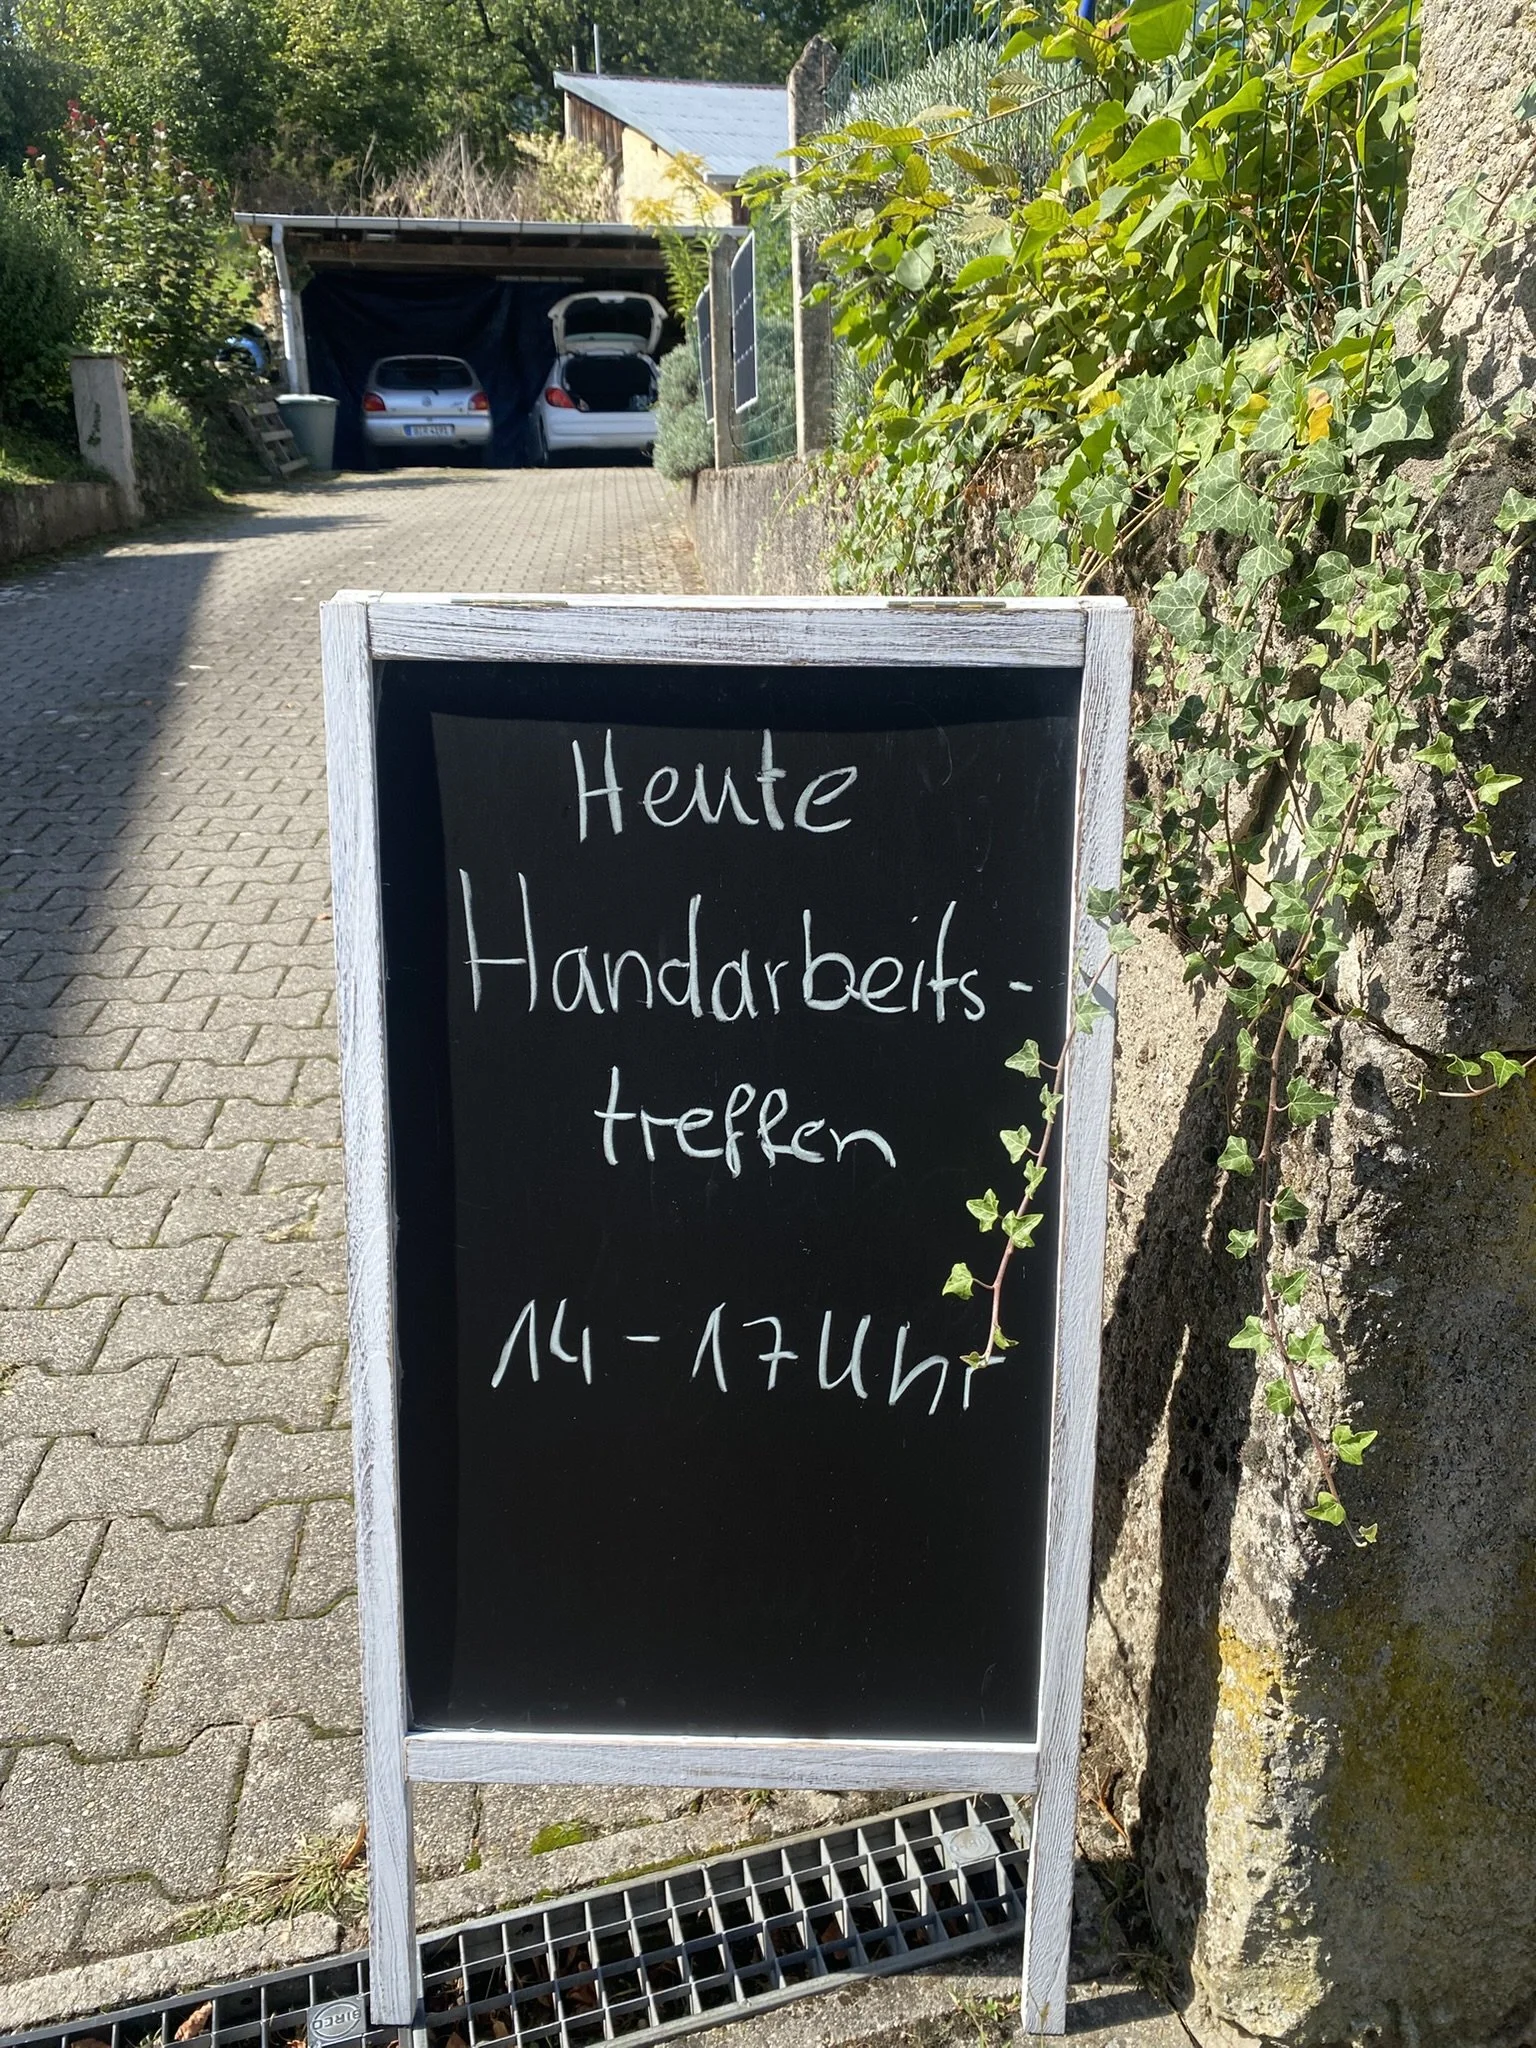 Heute
Handarbeits-
treffen
14 - 17 Uhr
BIRCO